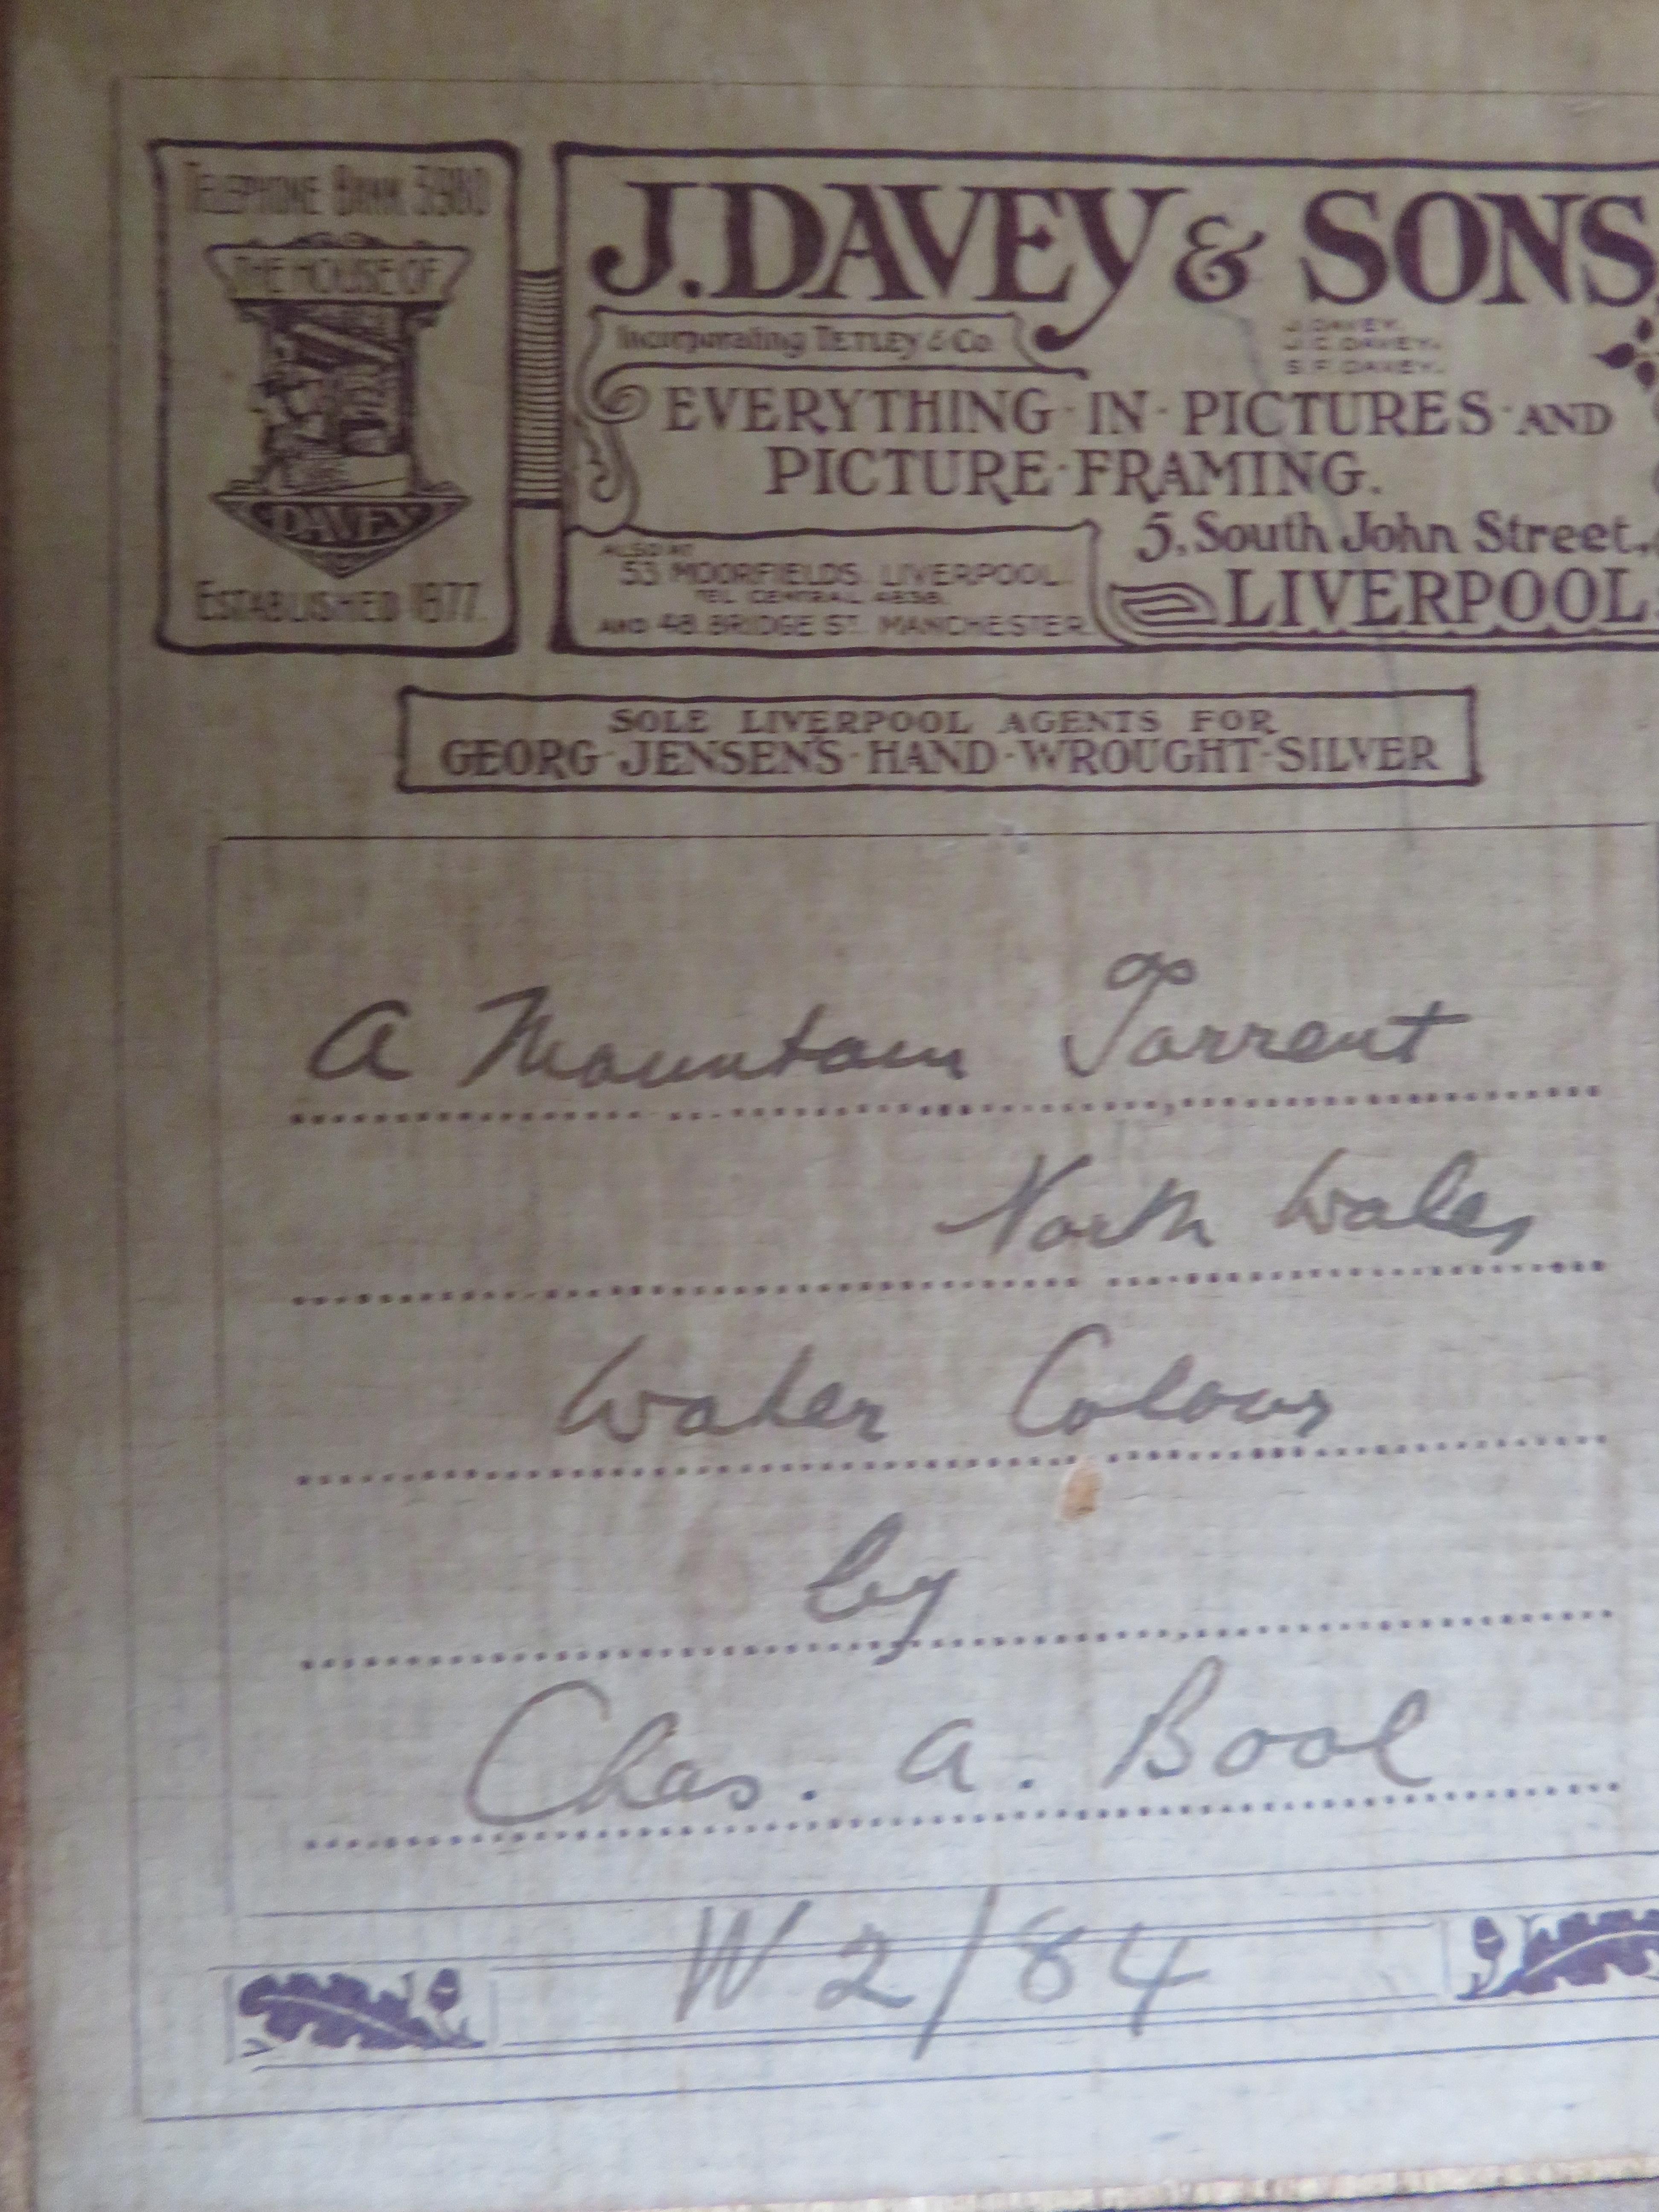 TELEPHONE BANK 5980
THE HOUSE OF
DAVEY
ESTABLISHED 1877.
J. DAVEY & SONS.
Incorporating TETLEY & Co.
J. DAVEY.
J. C. DAVEY.
S. F. DAVEY.
EVERYTHING · IN · PICTURES · AND
PICTURE · FRAMING.
5, South John Street,
LIVERPOOL.
ALSO AT
53 MOORFIELDS, LIVERPOOL.
TEL CENTRAL 4838.
AND 48, BRIDGE ST. MANCHESTER.
SOLE LIVERPOOL AGENTS FOR
GEORG · JENSENS · HAND · WROUGHT · SILVER
A Mountain Torrent
North Wales
Water Colour
by
Chas. A. Bool
W 2/84